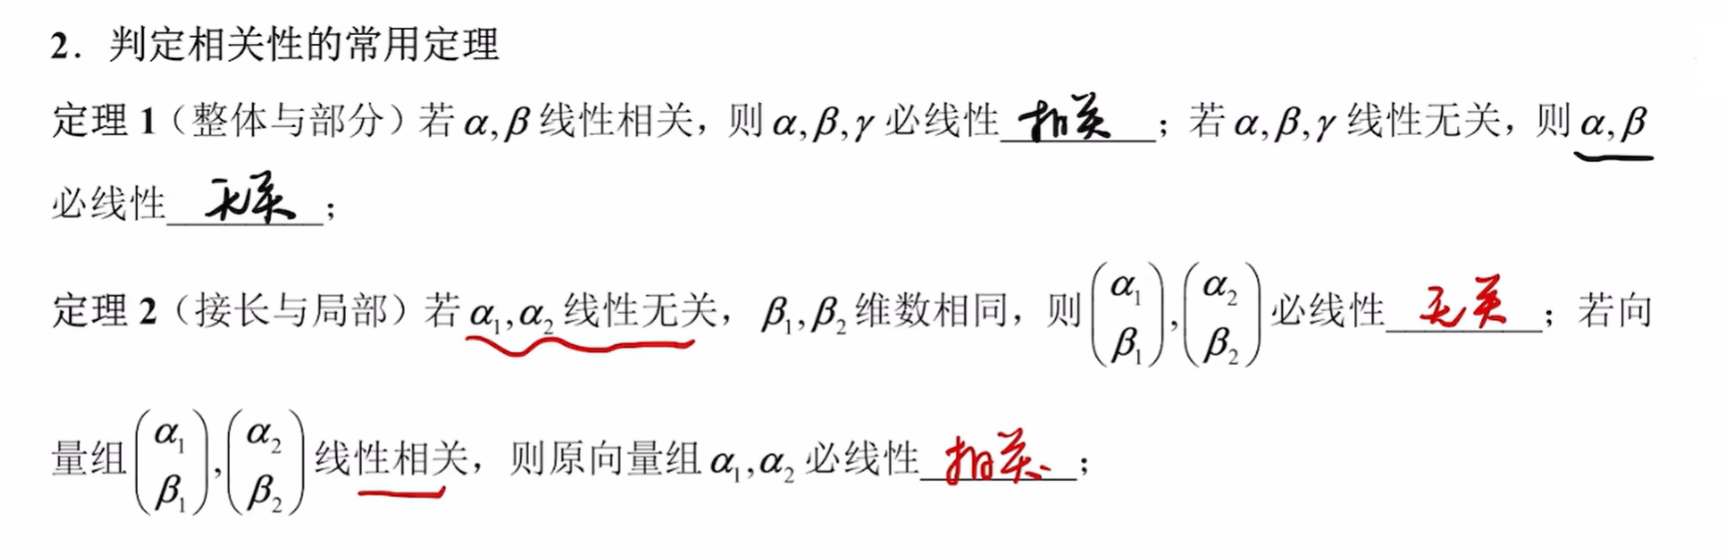 2. 判定相关性的常用定理
定理 1（整体与部分）若 α,β 线性相关，则 α,β,γ 必线性 相关 ；若 α,β,γ 线性无关，则 α,β
必线性 无关 ；
定理 2（接长与局部）若 α₁,α₂ 线性无关，β₁,β₂ 维数相同，则 (α₁ β₁),(α₂ β₂) 必线性 无关 ；若向
量组 (α₁ β₁),(α₂ β₂) 线性相关，则原向量组 α₁,α₂ 必线性 相关 ；